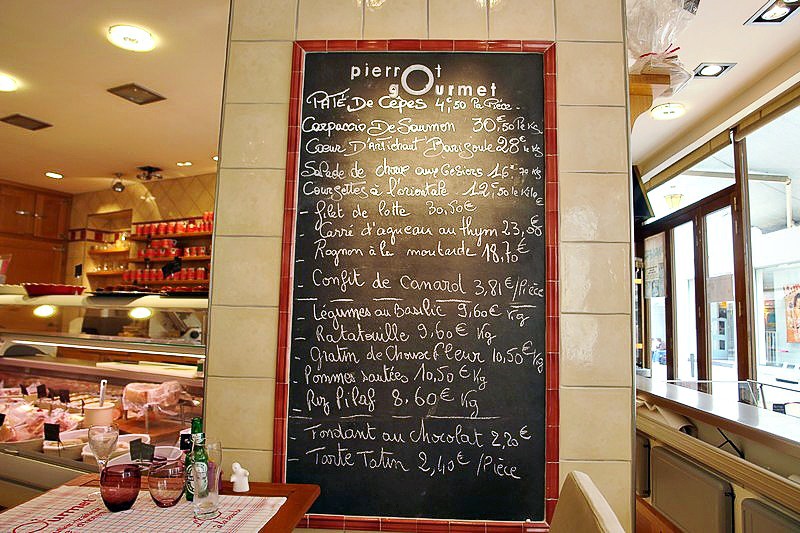 pierrot
gourmet
Pâté De Cèpes 4€50 La Pièce
Carpaccio De Saumon 30€,50 le Kg
Coeur D'Artichaut Barigoule 28€ le Kg
Salade de choux aux Gesiers 16€70 Kg
Courgettes à l'orientale 12€,50 le Kilo
- filet de lotte 30,50€
- Carré d'agneau au thym 23,50€
- Rognon à la moutarde 18,70€
- Confit de canard 3,81€/Pièce
- Légumes au Basilic 9,60€ Kg
- Ratatouille 9,60€ Kg
- Gratin de Choux Fleur 10,50€ Kg
- Pommes sautées 10,50€ Kg
- Riz Pilaf 8,60€ Kg
- Fondant au chocolat 2,20€
- Tarte Tatin 2,40€/Pièce